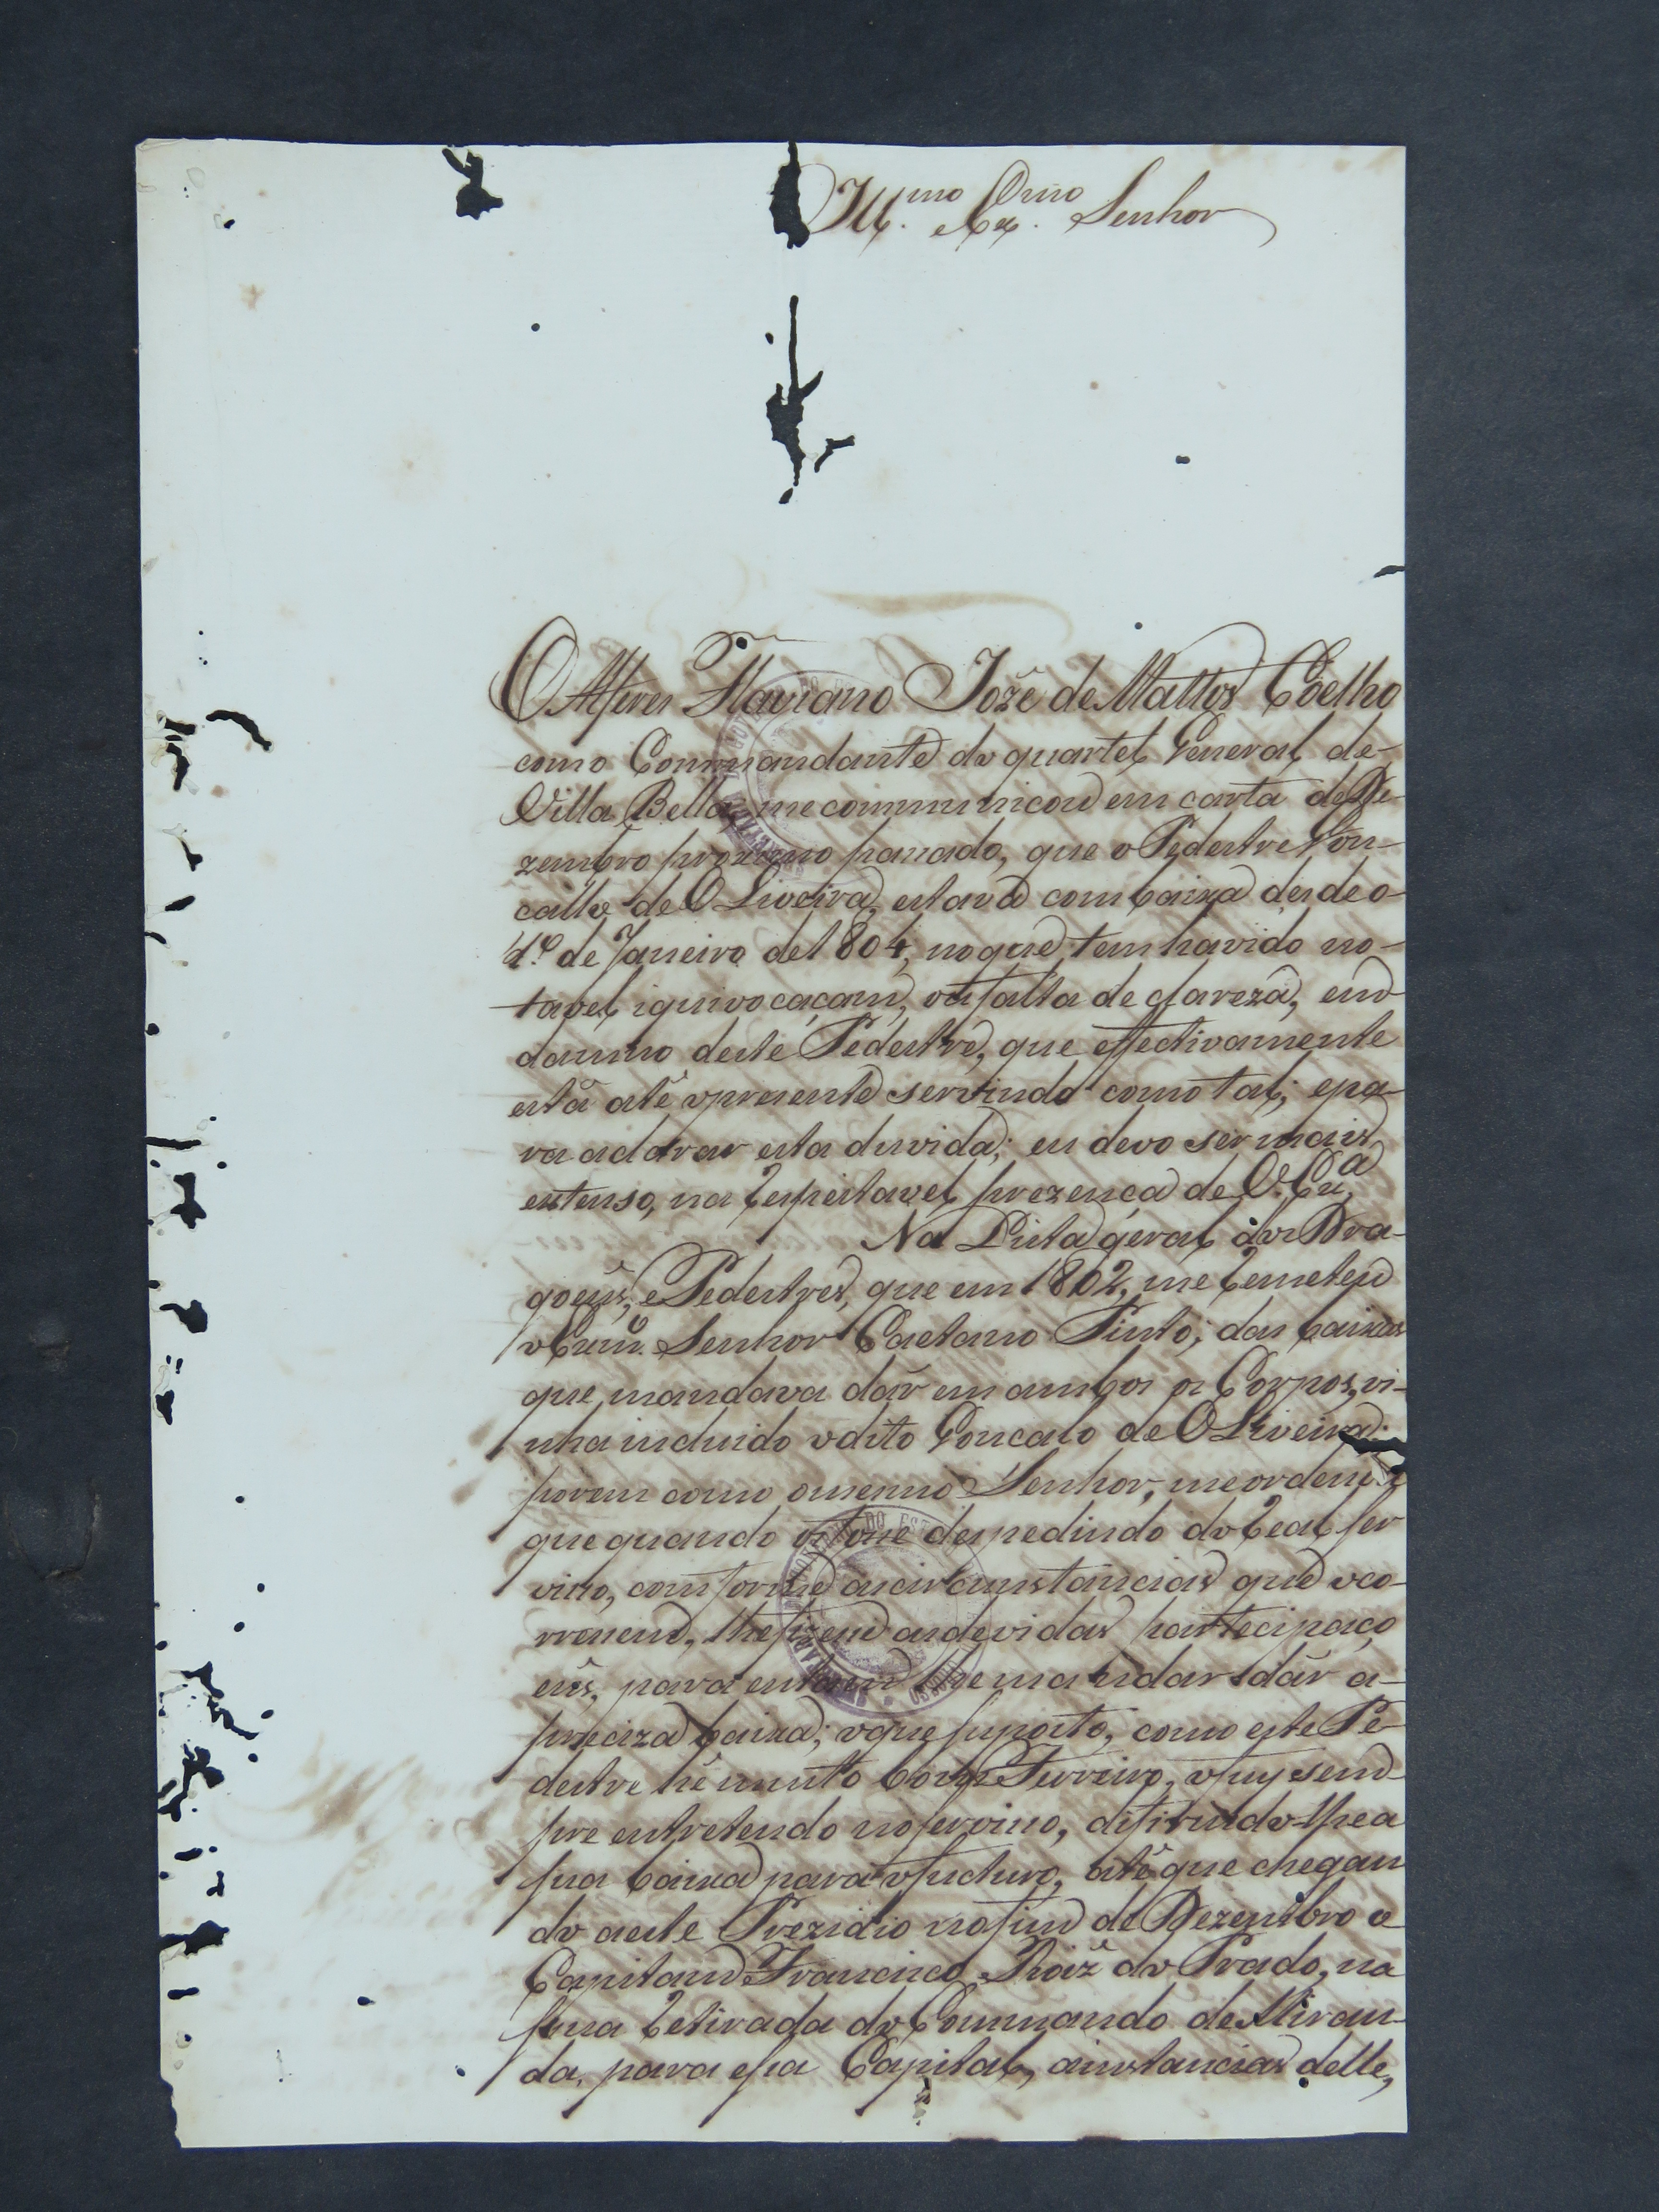 Ill.mo e Ex.mo Senhor
O Alferes Flaviano Jozé de Mattos Coelho
como Commandante do quartel General de
Villa Bella, me communicou em carta de De-
zembro proximo passado, que o Pedestre Gon-
çallo de OLiveira, estava com baixa desde o
1.º de Janeiro de 1804, no que tem havido no-
tavel iquivocaçam, ou falta de clareza, em
damno deste Pedestre, que effectivamente
está até o presente servindo como tal; e pa-
ra aclarar esta duvida; eu devo ser mais
extenso, na Respeitavel prezença de V. Ex.a
Na Lista geral dos Dra-
goens, e Pedestres, que em 1802, me Remeteu
o Exmo. Senhor Caetano Pinto; das baixas
que mandava dár em ambos os Corpos, vi-
nha incluido o dito Goncalo de OLiveira;
porem como o mesmo Senhor, me ordena
que quando os fosse despedindo do Real ser
viço, comforme as circumstancias que oco-
rrecem, lhe fizese as devidas partecipaço
ens, para entam lhe mandar dár a-
preciza baixa; o que suposto, como este Pe-
destre hé muito bom Ferreiro, o fuy sem-
pre entretendo no serviço, difirindo-lhe a
sua baixa para o fucturo, até que chegan
do a este Prezidio no fim de Dezembro o
Capitam Francisco Roiz do Prado, na
sua Retirada do Commando de Miran-
da, para essa Capital, a instancias delle,